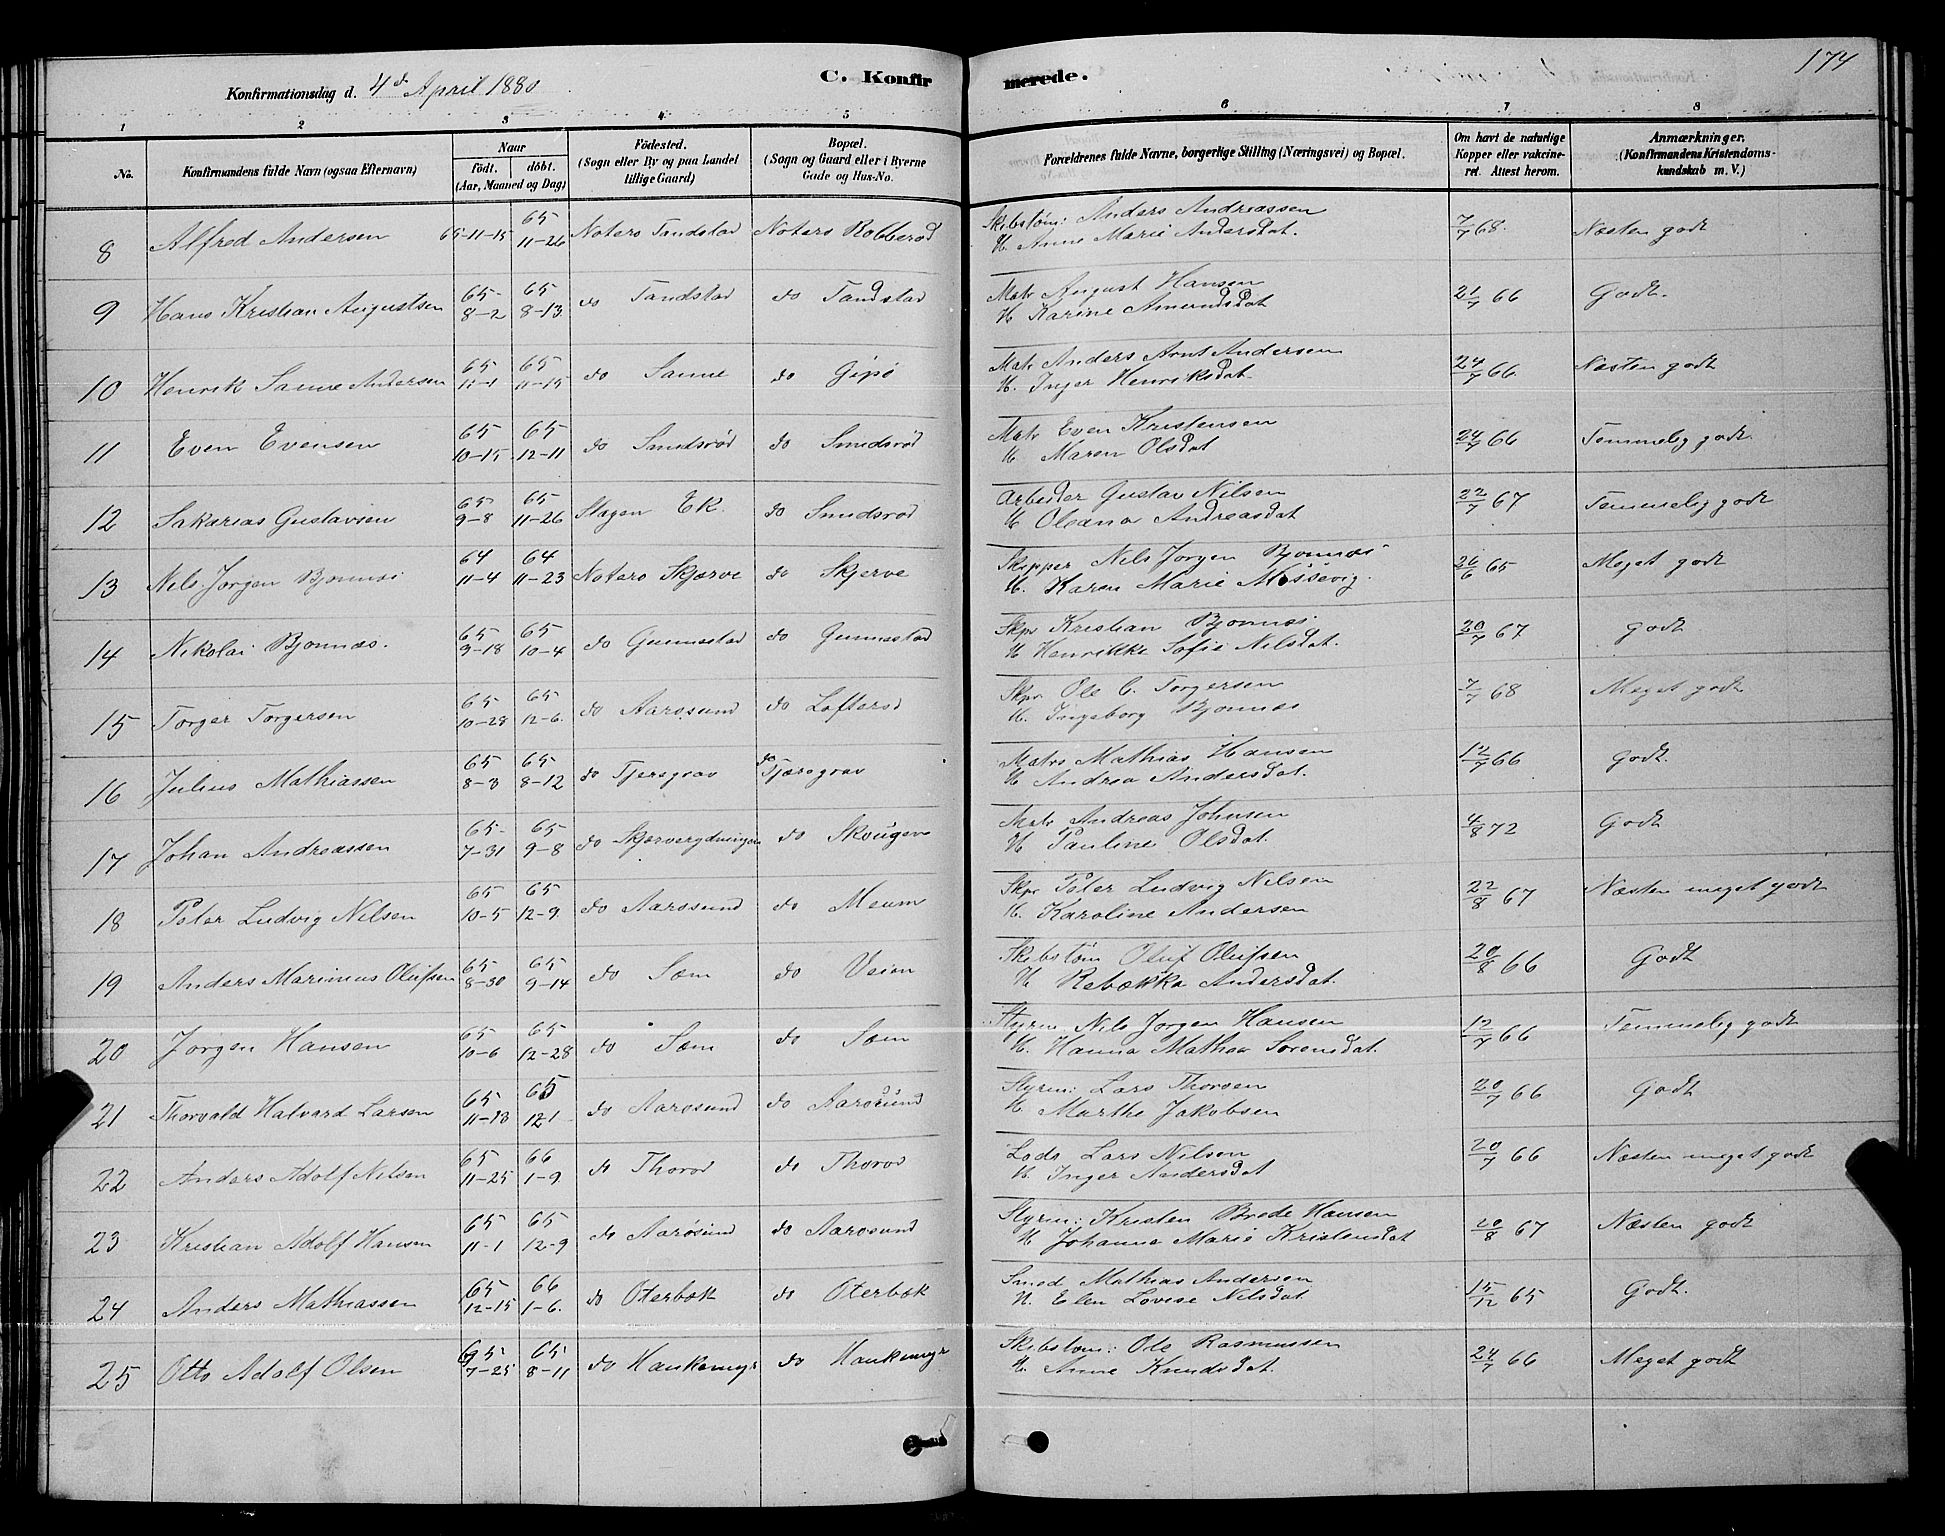 174
Konfirmationsdag d. 4de April 1880
C. Konfirmerede.
1 2 3 4 5 6 7 8
No. Konfirmandens fulde Navn (ogsaa Efternavn) Naar födt. döbt. (Aar, Maaned og Dag) Födested. (Sogn eller By og paa Landet tillige Gaard) Bopæl. (Sogn og Gaard eller i Byerne Gade og Hus-No. Forældrenes fulde Navne, borgerlige Stilling (Næringsvei) og Bopæl. Om havt de naturlige Kopper eller vakcineret. Attest herom. Anmærkninger, (Konfirmandens Kristendomskundskab m. V.)
8 Alfred Andersen 65-11-15 65 11-26 Notero Tandstad Notero Robberød Skibstøm: Anders Andreassen 7/7 68. Næsten godt
H. Anne Marie Andersdat.
9 Hans Kristian Augustsen 65 8-2 65 8-13 do Tandstad do Tandstad Matr August Hansen 21/7 66 Godt.
H Karine Amundsdat
10 Henrik Sanne Andersen 65 11-1 65 11-15 do Sanne do Gipø Matr Anders Arnt Andersen 24/7 66. Næsten godt
H. Inger Henriksdat.
11 Even Evensen 65 10-15 65 12-11 do Smidsrød do Smidsrød Matr Even Kristensen 24/7 66 Temmelig godt.
H Maren Olsdat
12 Sakarias Gustavsen 65 9-8 65 11-26 Slagen Ek. do Smidsrød Arbeider Gustav Nilsen 22/7 67 Temmelig godt
H Oleana Andreasdat
13 Nils Jørgen Bjønnes 64 11-4 64 11-23 Notero Skjærve do Skjerve Skipper Nils Jørgen Bjønnæs 26/6 65 Meget godt
H. Karen Marie Møssevig.
14 Nikolai Bjønnæs. 65 9-18 65 10-4 do Gunnestad do Gunnestad Skpr Kristian Bjønnæs 30/7 67 Godt
H Henrikke Sofie Nilsdat.
15 Torger Torgersen 65 10-28 65 12-6. do Aarøsund do Løfterød Skpr Ole C. Torgersen 7/7 68 Meget godt
H. Ingeborg Bjønnes
16 Julius Mathiassen 65 8-3 65 8-12 do Tjersgrav do Tjærsgrav Matrs Mathias Hansen 12/7 66 Godt.
H Andrea Andersdat.
17 Johan Andreassen 65 7-31 65 9-8 do Skjærverydningen do Skougen Matr Andreas Johnsen 4/8 72 Godt
H Pauline Olsdat.
18 Peter Ludvig Nilsen 65 10-5 65 12-9. do Aarøsund do Meum Skpr Peter Ludvig Nilsen 22/8 67 Næsten meget godt
H. Karoline Andersen
19 Anders Marinius Olufsen 65 8-30 65 9-14 do Sæm do Veien Skibstøm Oluf Olufsen 20/8 66 Godt
H Rebækka Andersdat.
20 Jørgen Hansen 65 10-6 65 12-28 do Sæm do Sæm Styrm. Nils Jørgen Hansen 12/7 66 Temmelig godt
H. Hanna Mathea Sørensdat.
21 Thorvald Halvard Larsen 65 11-13 65 12 1 do Aarøsund do Aarøsund Styrm: Lars Thorsen 20/7 66 Godt
H Marthe Jakobsen
22 Anders Adolf Nilsen 65 11-25 66 1-9. do Thorød do Thorød Lods Lars Nilsen 20/7 66 Næsten meget godt
H. Inger Andersdat
23 Kristian Adolf Hansen 65 11-1 65 12-9 do Aarøsund do Aarøsund Styrm: Kristen Brede Hansen 20/8 67 Næsten godt
H Johanne Marie Kristensdat
24 Anders Mathiassen 65 12-15 66 1-6. do Oterbæk do Oterbæk Smed Mathias Andersen 15/12 65 Godt.
H. Elen Lovise Nilsdat
25 Otto Adolf Olsen 65 7-25 65 8-11 do Haukemyr do Haukemyr Skibstøm: Ole Rasmussen 24/7 66 Meget godt
H. Anne Knudsdat.